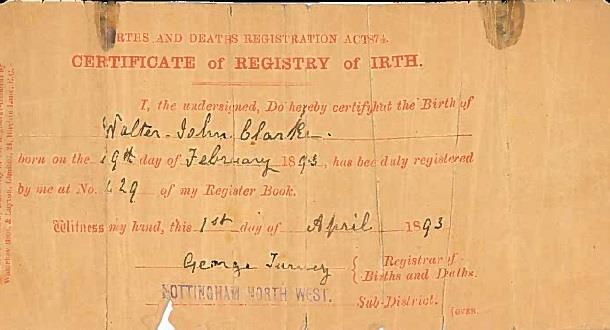 RTHS AND DEATHS REGISTRATION ACT 1874.
CERTIFICATE of REGISTRY of IRTH.
I, the undersigned, Do hereby certify that the Birth of
Walter John Clarke
born on the 19th day of February 1893, has bee duly registered
by me at No. 429 of my Register Book.
Witness my hand, this 1st day of April 1893
George Turvey { Registrar of
Births and Deaths.
NOTTINGHAM NORTH WEST. Sub-District.
(OVER.